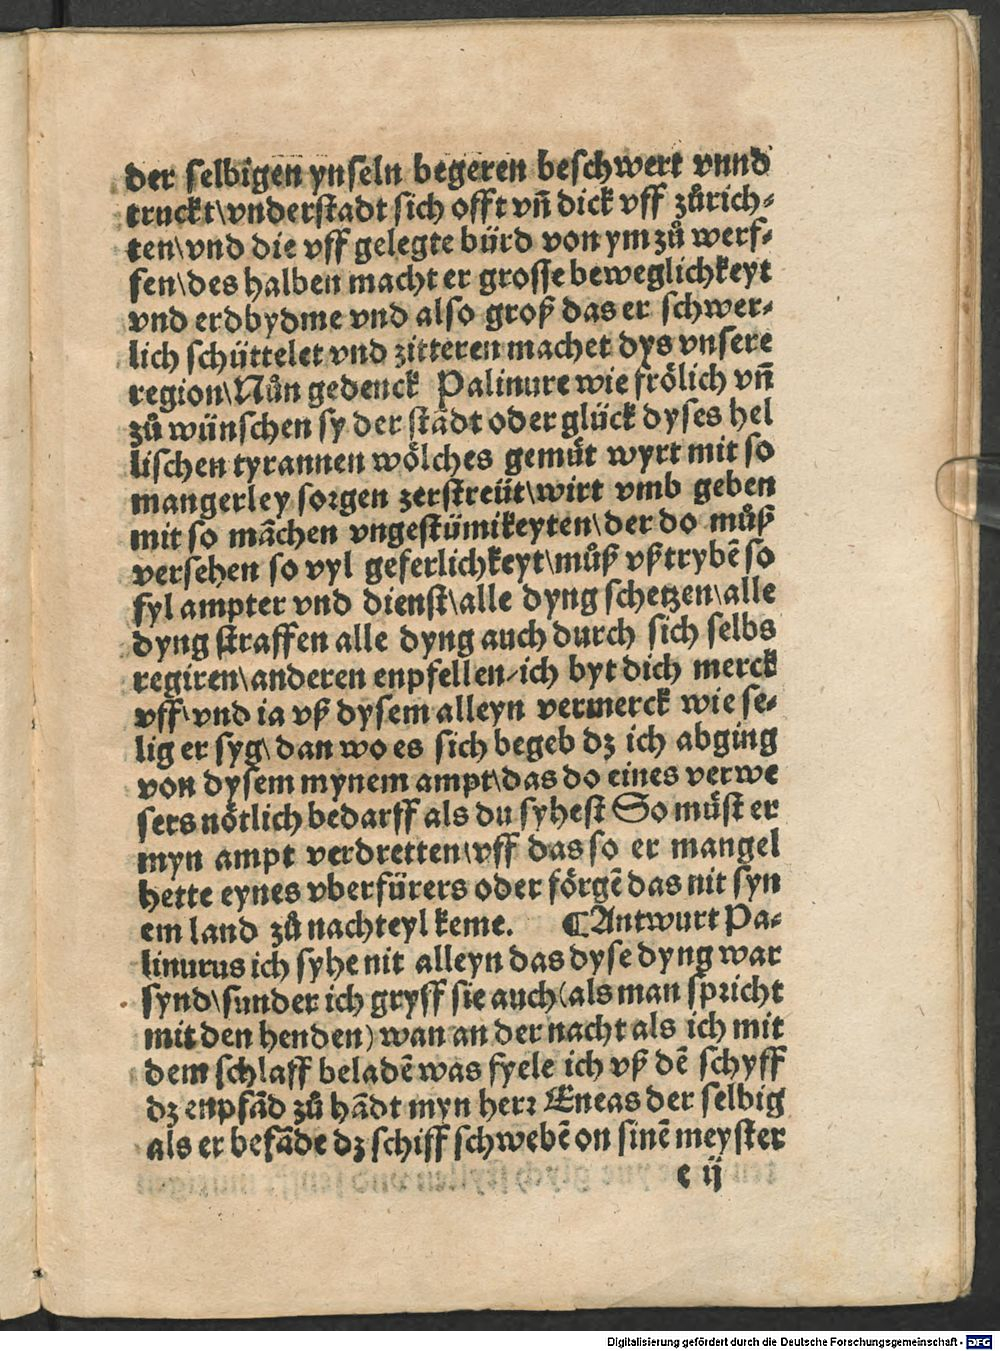 der selbigen ynseln begeren beschwert vnnd
truckt\vnderstadt sich offt vñ dick vff zůrich⸗
ten\vnd die vff gelegte bürd von ym zů werf⸗
fen\des halben macht er grosse beweglichkeyt
vnd erdbydme vnd also groß das er schwer⸗
lich schüttelet vnd zitteren machet dys vnsere
region\Nůn gedenck Palinure wie frölich vñ
zů wünschen sy der städt oder glück dyses hel
lischen tyrannen wölches gemüt wyrt mit so
mangerley sorgen zerstreüt\wirt vmb geben
mit so mãchen vngestümikeyten\der do můß
versehen so vyl geferlichkeyt\můß vßtrybẽ so
fyl ampter vnd dienst\alle dyng schetzen\alle
dyng straffen alle dyng auch durch sich selbs
regiren\anderen enpfellen/ich byt dich merck
vff\vnd ia vß dysem alleyn vermerck wie se⸗
lig er syg\dan wo es sich begeb dz ich abging
von dysem mynem ampt\das do eines verwe
sers nötlich bedarff als du syhest So müst er
myn ampt verdretten\vff das so er mangel
hette eynes vberfürers oder förgẽ das nit syn
em land zů nachteyl keme. ¶Antwurt Pa⸗
linurus ich syhe nit alleyn das dyse dyng war
synd\sunder ich gryff sie auch(als man spricht
mit den henden)wan an der nacht als ich mit
dem schlaff beladẽ was fyele ich vß dẽ schyff
dz enpfãd zů hãdt myn herr Eneas der selbig
als er befãde dz schiff schwebẽ on sinẽ meyster
c ij
Digitalisierung gefördert durch die Deutsche Forschungsgemeinschaft - DFG